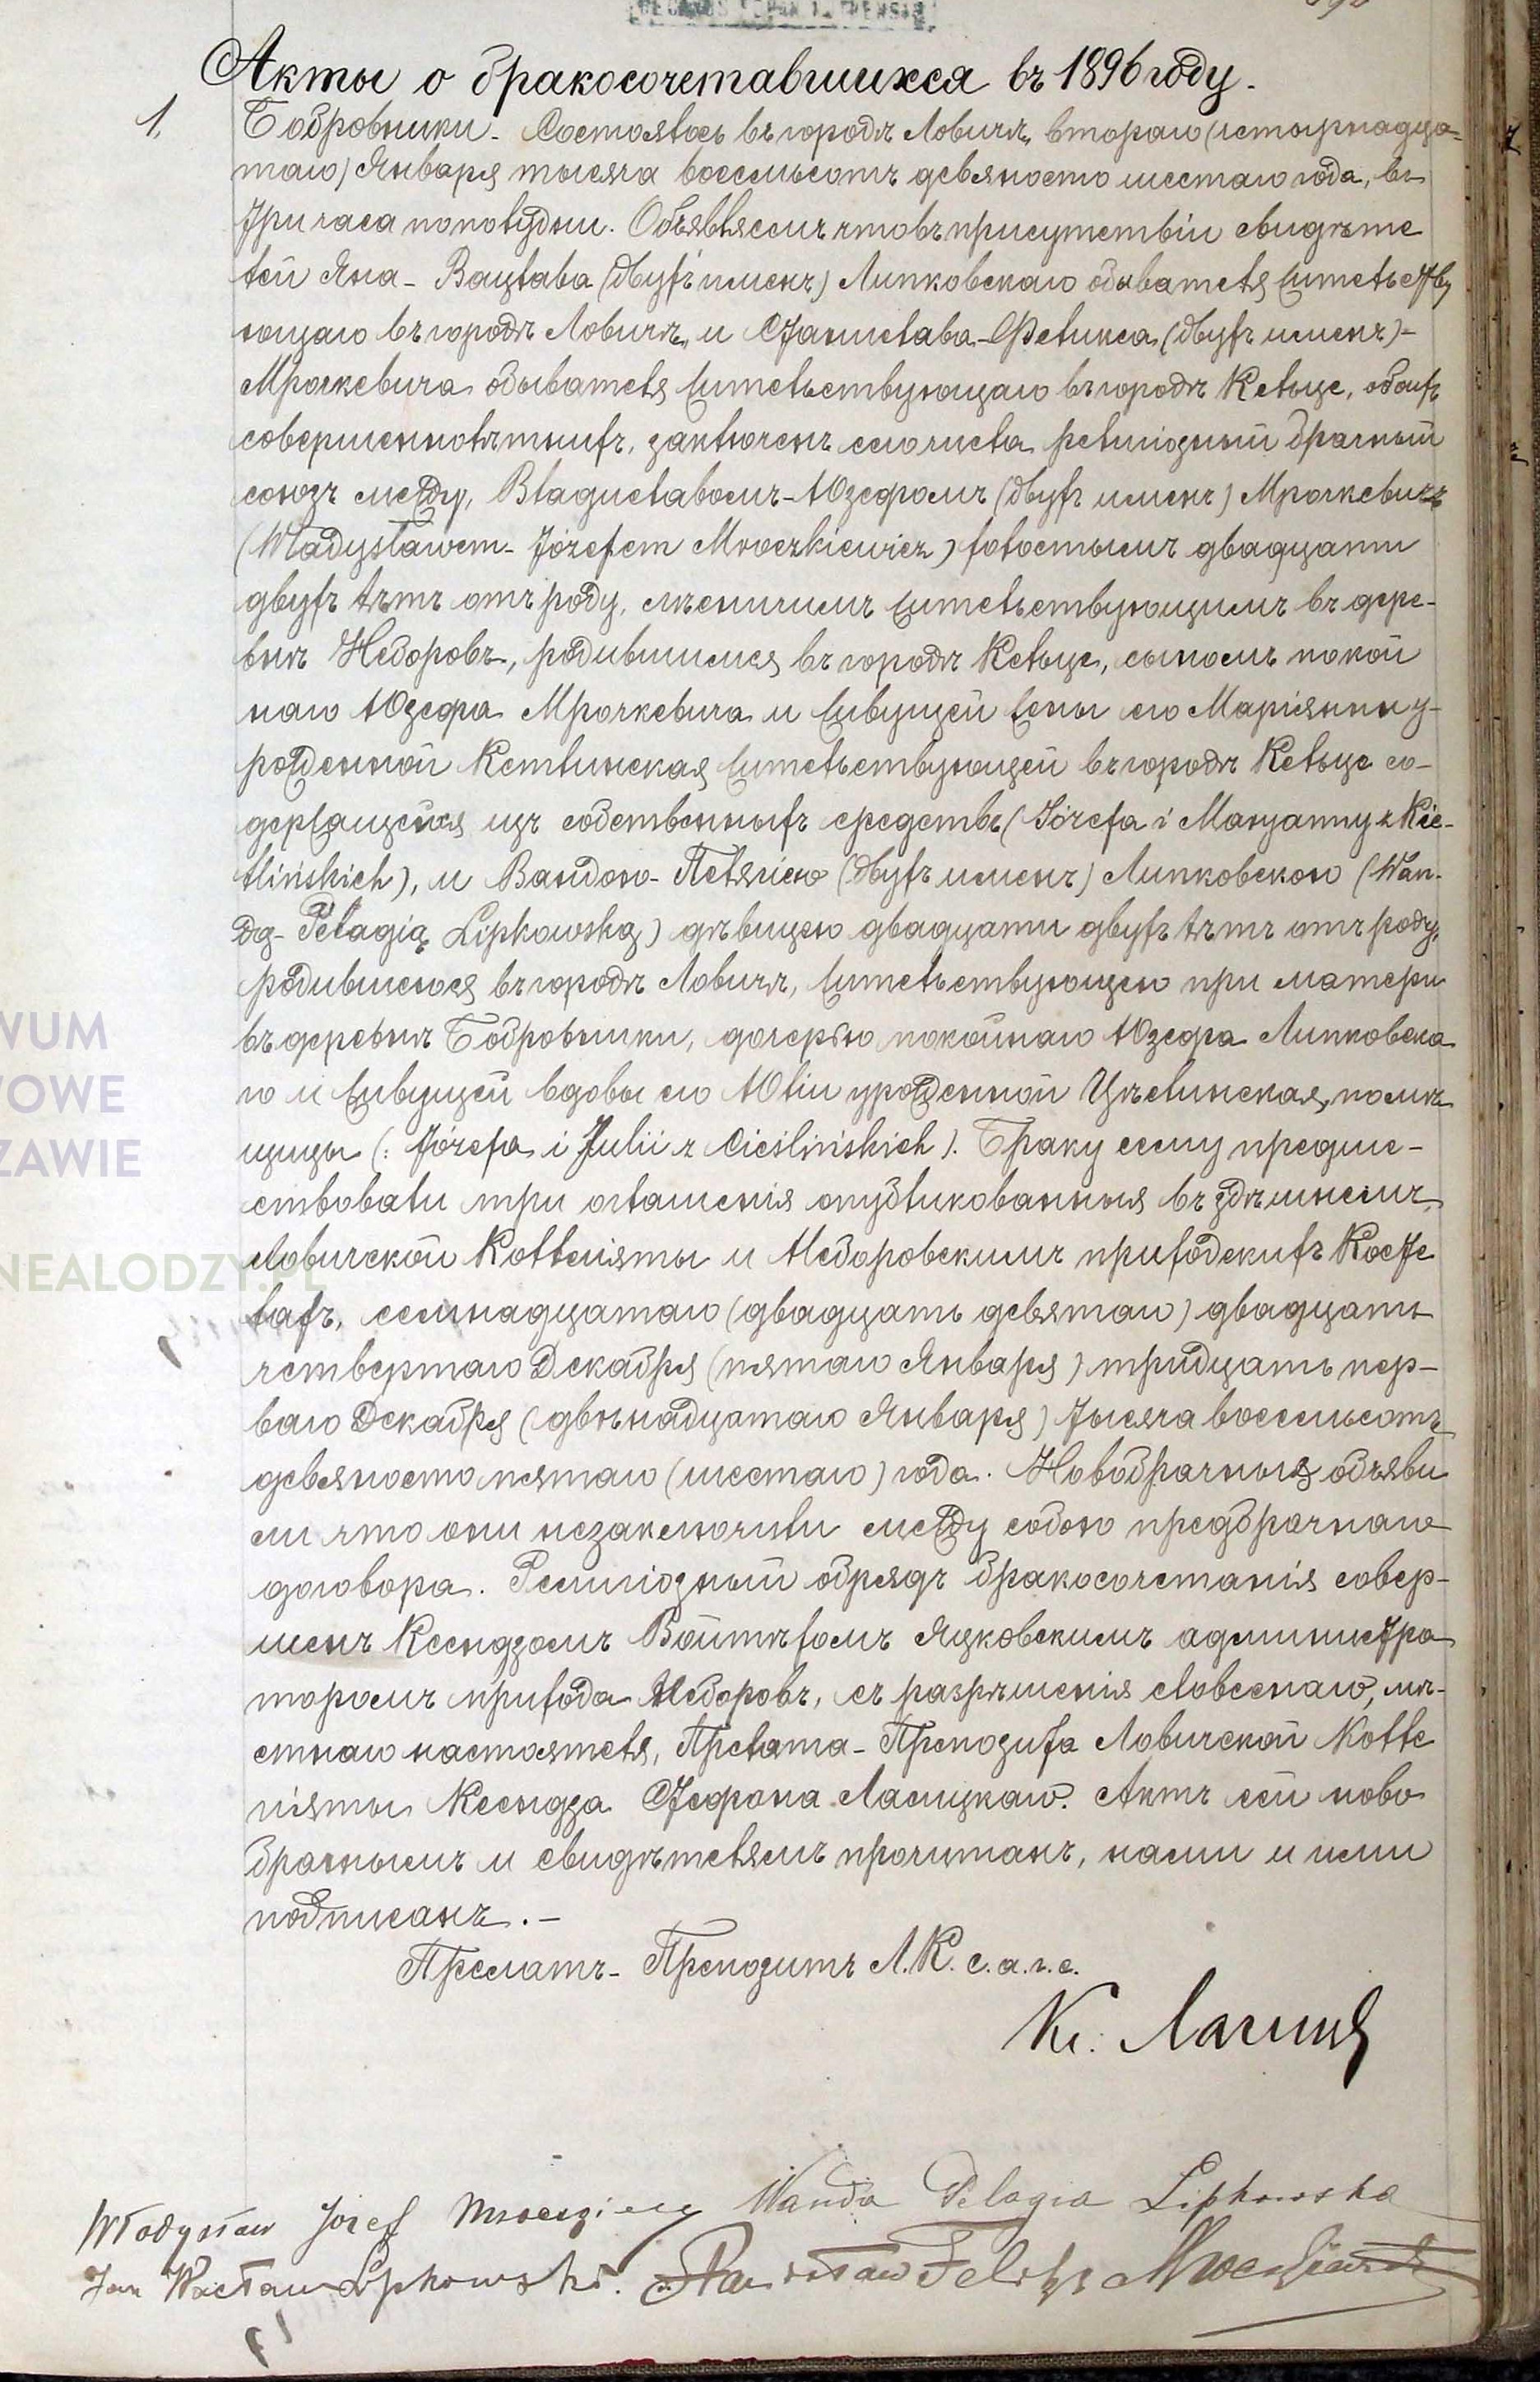 Акты о бракосочетавшихся въ 1896 году.
1. Бобровники. Состоялось въ городѣ Ловичѣ, втораго (четырнадца-
таго) Января тысяча восемьсотъ девяносто шестаго года, въ
три часа пополудни. Объявляемъ что въ присутствіи свидѣте
лей Яна-Вацлава (двухъ именъ) Липковскаго обывателя жительству
ющаго въ городѣ Ловичѣ, и Станислава-Феликса (двухъ именъ)-
Мрочкевича обывателя жительствующаго въ городѣ Кельце, обоихъ
совершеннолѣтнихъ, заключенъ сего числа религіозный брачный
союзъ между, Владиславомъ-Юзефомъ (двухъ именъ) Мрочкевичъ
(Władysławem-Józefem Mroczkiewicz) холостымъ двадцати
двухъ лѣтъ отъ роду, мѣсничимъ жительствующимъ въ дере-
внѣ Недоровъ, родившимся въ городѣ Кельце, сыномъ покой
наго Юзефа Мрочкевича и живущей жены его Маріянны у-
рожденной Кетлинская жительствующей въ городѣ Кельце со-
держащейся изъ собственныхъ средствъ (Józefa i Maryanny z Kie-
tlińskich), и Вандою-Пелягіею (двухъ именъ) Липковскою (Wan-
dą-Pelagią Lipkowską) дѣвицею двадцати двухъ лѣтъ отъ роду,
родившеюся въ городѣ Ловичѣ, жительствующею при матери
въ деревнѣ Бобровники, дочерью покойнаго Юзефа Липковска
го и живущей вдовы его Юліи урожденной Цѣслинская, помѣ
щицы (: Józefa i Julii z Cieślińskich). Браку сему предше-
ствовали три оглашенія опубликованныя въ здѣшнемъ,
Ловичской Коллегіяты и Недоровскимъ приходскихъ Косте
лахъ, семнадцатаго (двадцать девятаго) двадцать
четвертаго Декабря (пятаго Января) тридцать пер-
ваго Декабря (двѣнадцатаго Января) тысяча восемьсотъ
девяносто пятаго (шестаго) года. Новобрачныя объяви
ли что они незаключили между собою предбрачнаго
договора. Религіозный обрядъ бракосочетанія совер-
шенъ Ксендзомъ Войтѣхомъ Яцковскимъ администра
торомъ прихода Недоровъ, съ разрѣшенія словеснаго, мѣ-
стнаго настоятеля, Прелата-Препозита Ловичской Колле
гіяты Ксендза Стефана Ласицкаго. Актъ сей ново
брачнымъ и свидѣтелямъ прочитанъ, нами и ими
подписанъ.-
Прелатъ-Препозитъ Л.К. с.а.г.с.
Władysław Józef Wanda Pelagia Lipkowska
Jan Wacław Lipkowski. Stanisław Feliks